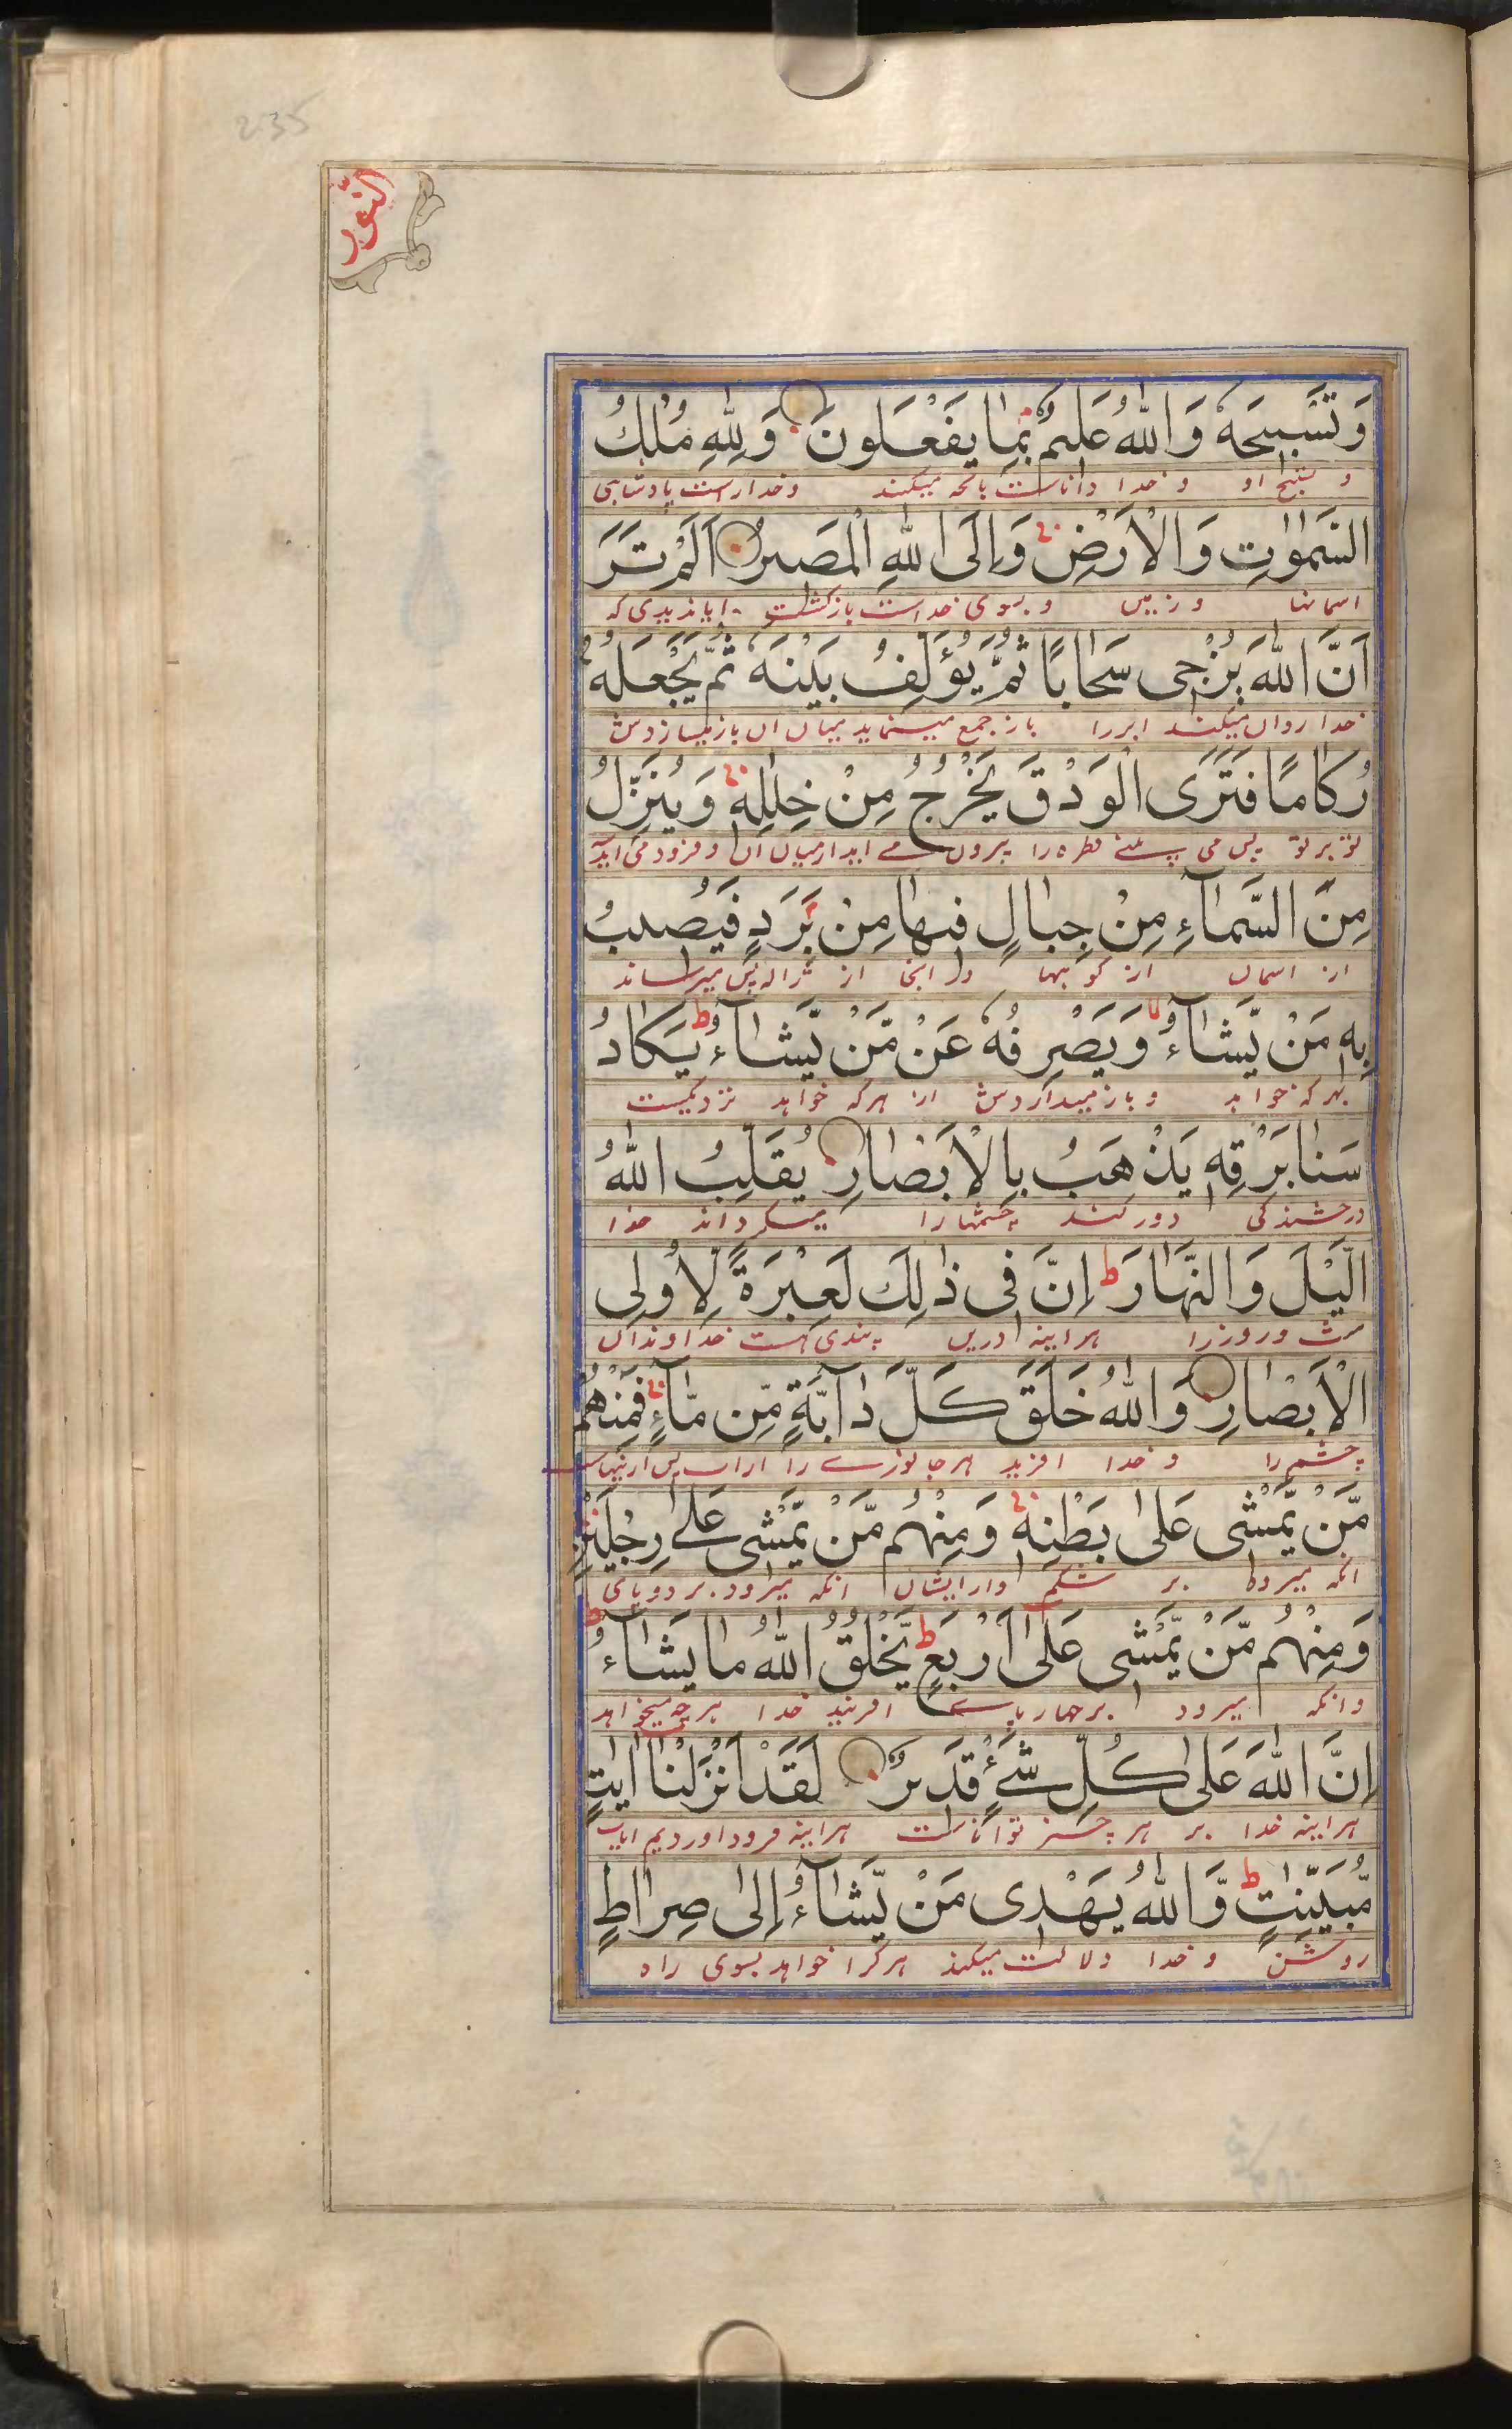 235
النّور
وَتَسْبِيحَهُ وَاللّٰهُ عَلِيمٌ بِمَا يَفْعَلُونَ وَلِلّٰهِ مُلْكُ
و تسبیح او و خدا داناست بانچه میکنند و خدا راست پادشاهی
السَّمٰوٰتِ وَالْاَرْضِ وَاِلَى اللّٰهِ الْمَصِيرُ اَلَمْ تَرَ
اسمانها و زمین و بسوی خداست بازگشت ایا ندیدی که
اَنَّ اللّٰهَ يُزْجِى سَحَابًا ثُمَّ يُؤَلِّفُ بَيْنَهُ ثُمَّ يَجْعَلُهُ
خدا روان میکند ابر را باز جمع مینماید میان ان باز میسازدش
رُكَامًا فَتَرَى الْوَدْقَ يَخْرُجُ مِنْ خِلٰلِهٖ وَيُنَزِّلُ
تو بر تو پس می بینے قطره را بیرون مے اید از میان ان و فرود می اید
مِنَ السَّمَآءِ مِنْ جِبَالٍ فِيهَا مِنْ بَرَدٍ فَيُصِيبُ
از اسمان از کوهها در انجا از ژاله پس میرساند
بِهٖ مَنْ يَّشَآءُ وَيَصْرِفُهُ عَنْ مَّنْ يَّشَآءُ ط يَكَادُ
بهر که خواهد و باز میداردش از هر که خواهد نزدیکست
سَنَا بَرْقِهٖ يَذْهَبُ بِالْاَبْصَارِ يُقَلِّبُ اللّٰهُ
درخشندگی دور کند چشمها را میگرداند خدا
الَّيْلَ وَالنَّهَارَ ط اِنَّ فِى ذٰلِكَ لَعِبْرَةً لِّاُولِى
شب و روز را هراینه درین پندی هست خداوندان
الْاَبْصَارِ وَاللّٰهُ خَلَقَ كُلَّ دَآبَّةٍ مِّنْ مَّآءٍ فَمِنْهُمْ
چشم را و خدا افرید هر جانورے را از اب پس ازینها
مَّنْ يَّمْشِى عَلٰى بَطْنِهٖ وَمِنْهُمْ مَّنْ يَّمْشِى عَلٰے رِجْلَيْنِ
انکه میرود بر شکم و از ایشان انکه میرود بر دو پای
وَمِنْهُمْ مَّنْ يَّمْشِى عَلٰى اَرْبَعٍ ط يَّخْلُقُ اللّٰهُ مَا يَشَآءُ ط
وانکه میرود بر چهار پاے افریند خدا هرچه میخواهد
اِنَّ اللّٰهَ عَلٰى كُلِّ شَےْءٍ قَدِيرٌ لَقَدْ اَنْزَلْنَا اٰيٰتٍ
هراینه خدا بر هر چیز تواناست هراینه فرود اوردیم ایات
مُّبَيِّنٰتٍ ط وَّاللّٰهُ يَهْدِى مَنْ يَّشَآءُ اِلٰى صِرَاطٍ
روشن و خدا دلالت میکند هر کرا خواهد بسوی راه